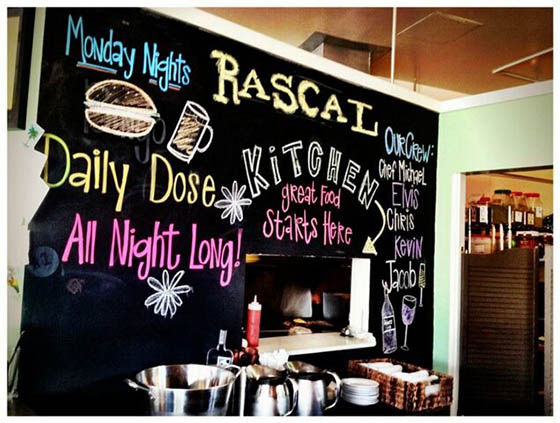 Monday Nights
Daily Dose
All Night Long!
RASCAL
KITCHEN
great Food
Starts Here
OUR CREW:
Chef Michael
Elvis
Chris
Kevin
Jacob